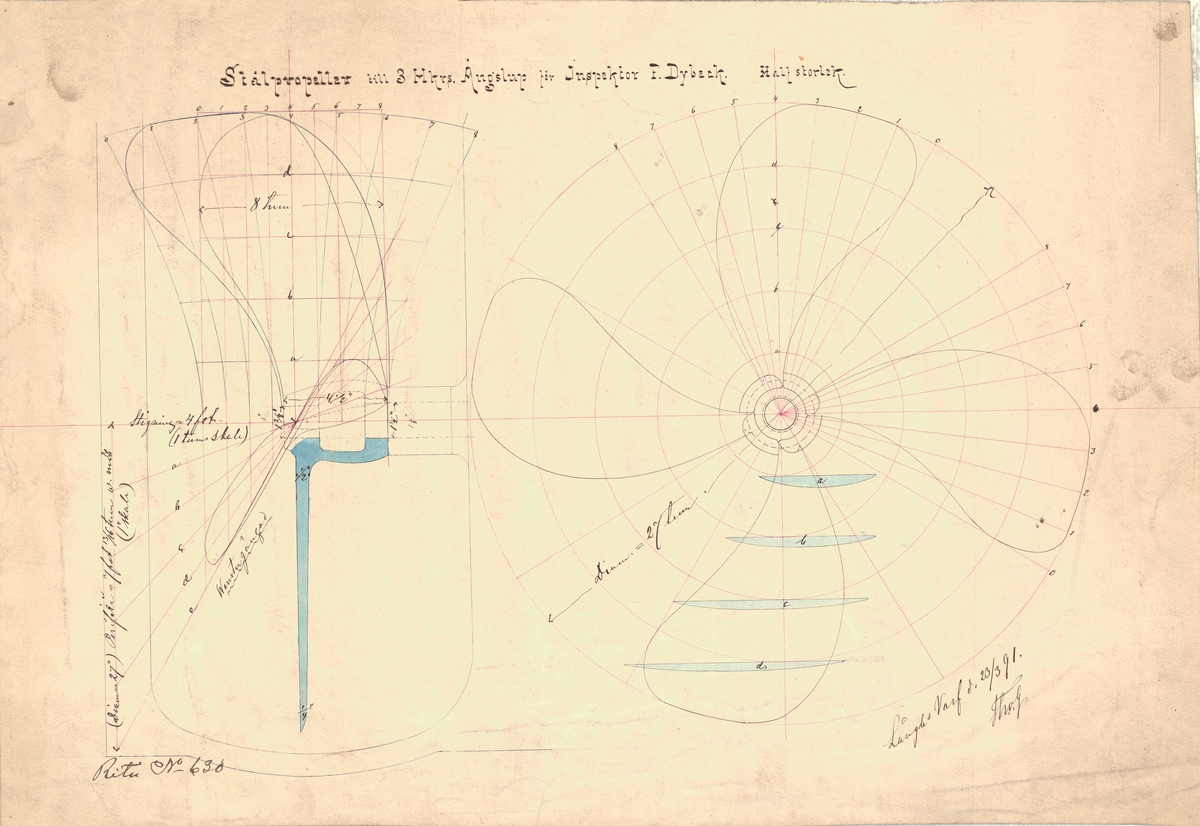 Stålpropeller till 3 Hkrs. Ångslup för Inspektor F. Dybeck. Half storlek.
0 1 2 3 4 5 6 7 8
0 1 2 3 4 5 6 7 8
d
8 tum
c
b
a
4½"
1½"
Stigning = 4 fot.
(1 tums skala)
½"
a
b
c
d
e
Wenstergängad
(Diameter 27") Periferi = 7 fot
(1" skala)
¼"
Ritn No 630
8 7 6 5 4 3 2 1 0
d
b
a
8
7
6
5
3
2
1
0
Diam. = 27 tum
a
b
c
d.
Varf d. 23/3 91.